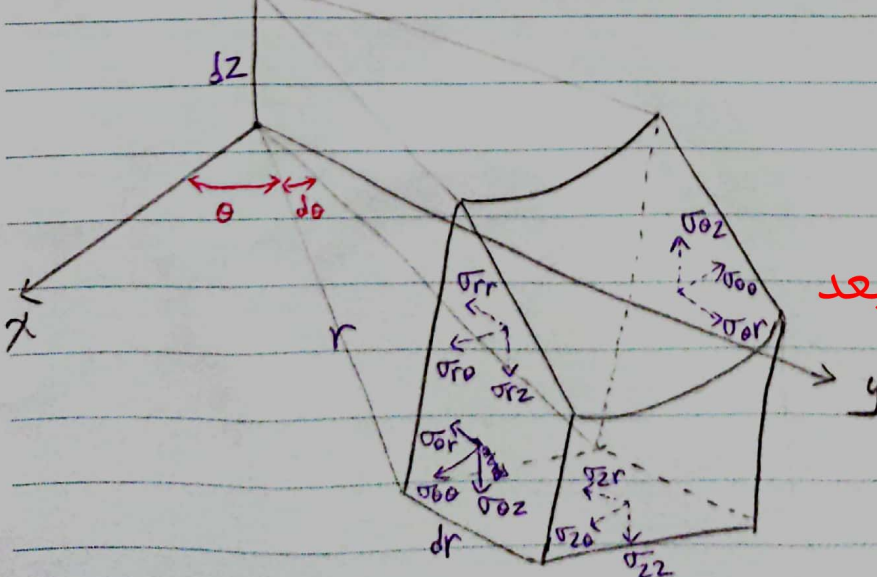 dz
θ
dθ
x
r
y
σθz
σθθ
σθr
σrr
σrθ
σrz
σθr
σθθ
σθz
dr
σzr
σzθ
σzz